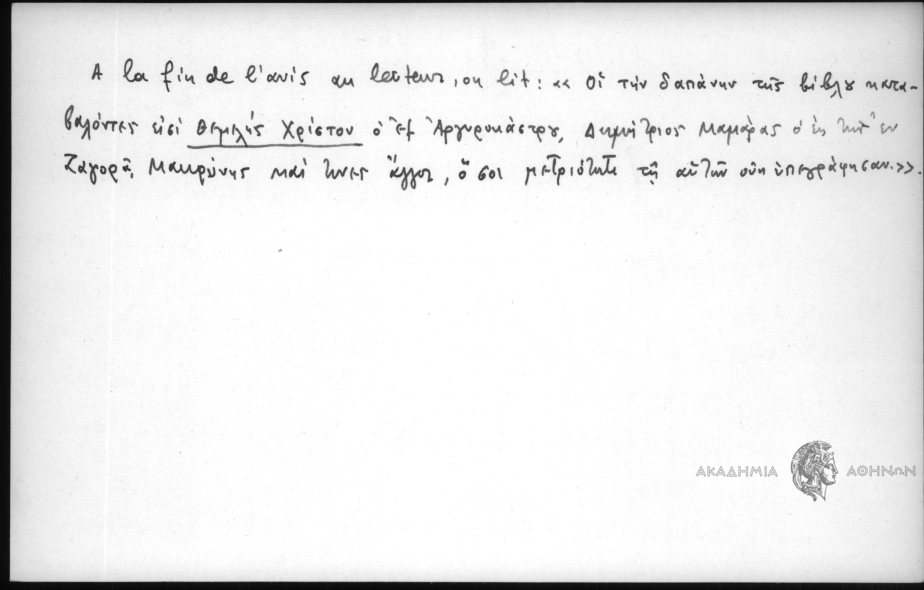 A la fin de l'avis au lecteur, on lit: «« Οἱ τὴν δαπάνην τῆς βίβλου κατα-
βαλόντες εἰσὶ Θεμελῆς Χρίστου ὁ ἐξ Ἀργυροκάστρου, Δημήτριος Μαμάρας ὁ ἐκ τῆς ἐν
Ζαγορᾷ, Μακρύνης καὶ τινες ἄλλοι, ὅσοι μετριότητι τῇ αὐτῶν οὐκ ὑπεγράφησαν.>>.
ΑΚΑΔΗΜΙΑ ΑΘΗΝΩΝ